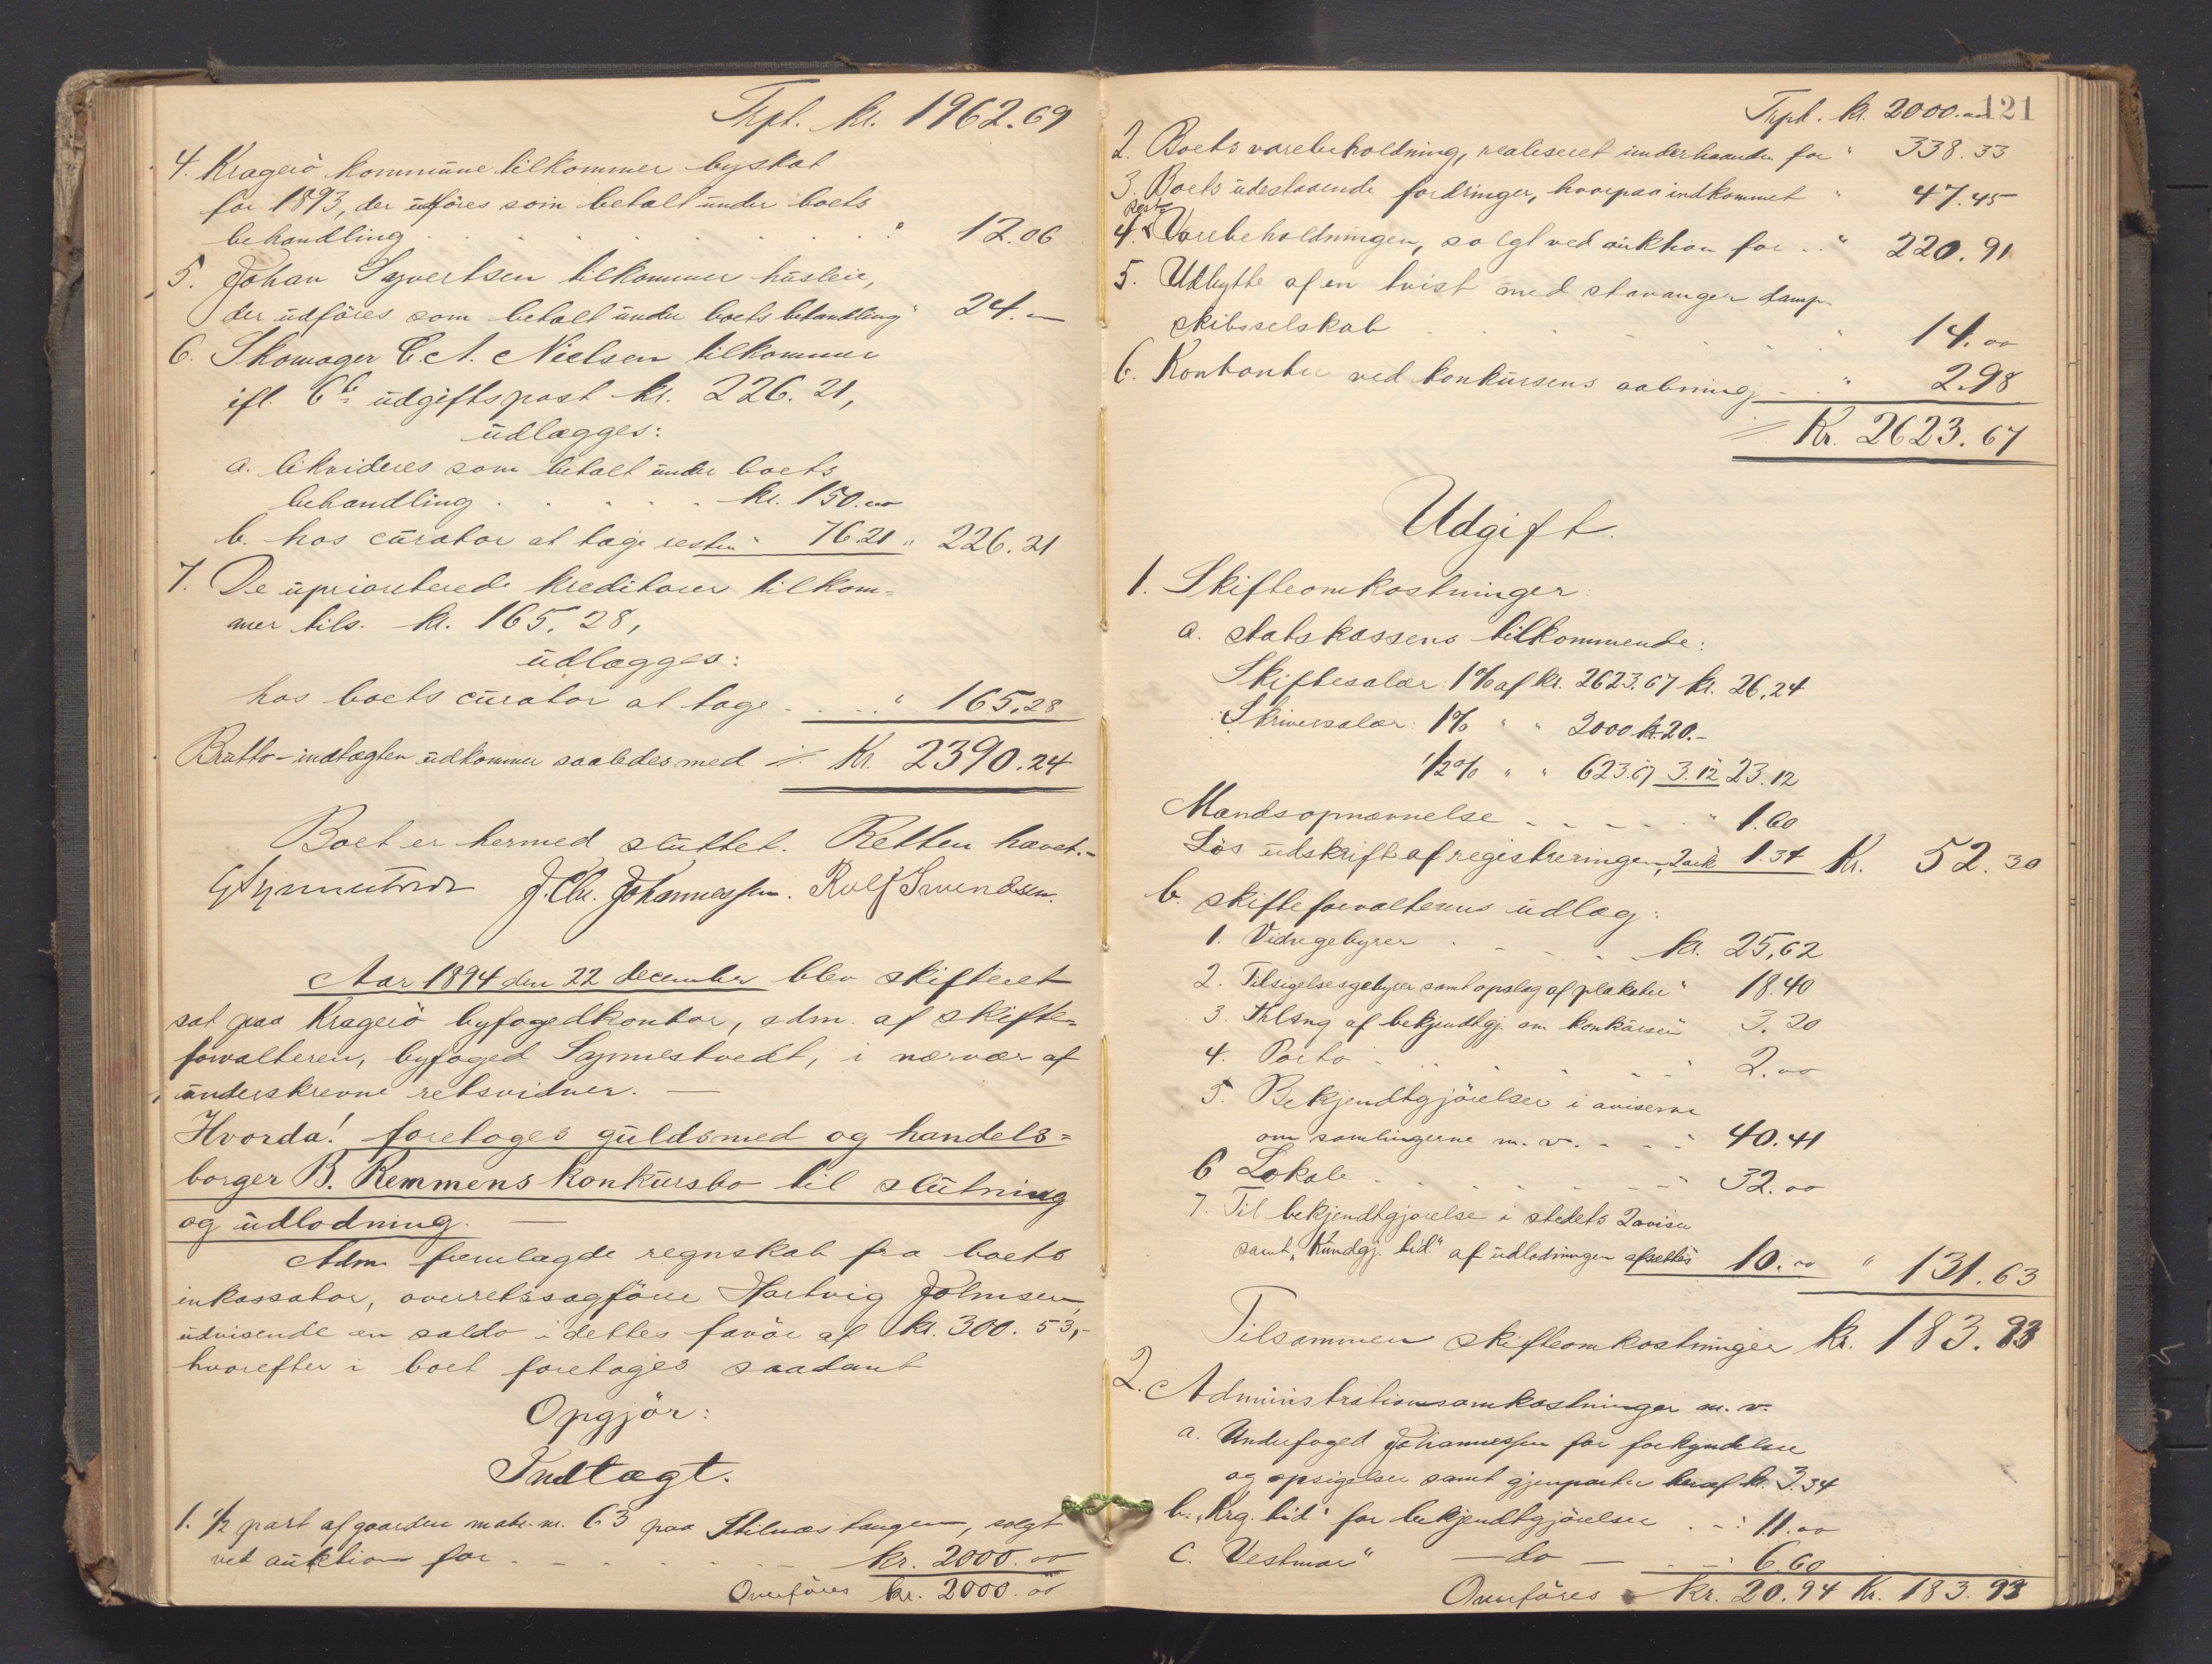 Trpt. kr. 1962.69
4. Kragerö kommune tilkommer byskat
for 1893, der udföres som betalt under boets
behandling . . . . . . . . " 12.06
5. Johan Syvertsen tilkommer husleie,
der udföres som betalt under boets behandling " 24.—
6. Skomager C. A. Nielsen tilkommer
ifl. 6te udgiftspost kr. 226.21,
udlægges:
a. likvideres som betalt under boets
behandling . . . . . . kr. 150.00
b. hos curator at tage resten " 76.21 " 226.21
7. De uprioriterede kreditorer tilkom-
mer tils. kr. 165.28,
udlægges:
hos boets curator at tage . . . . " 165.28
Brutto-indtægten udkommer saaledes med ./. Kr. 2390.24
Boet er hermed sluttet. Retten hævet.-
J. Chr. Johannessen. Rolf Svendsen.
Aar 1894 den 22 december blev skifteret
sat paa Kragerö byfogedkontor, adm. af skifte-
forvalteren, byfoged Synnestvedt, i nærvær af
underskrevne retsvidner. —
Hvorda! foretoges guldsmed og handels-
borger B. Remmens konkursbo til slutning
og udlodning. —
Adm. fremlagde regnskab fra boets
inkassator, overretssagförer Hartvig Johnsen,
udvisende en saldo i dettes favör af kr. 300.53,-
hvorefter i boet foretoges saadant
Opgjör:
Indtægt.
1. 1/2 part af gaarden matr. nr. 63 paa Stilnæstangen, solgt
ved auktion for . . . . . . kr. 2000.00
Overföres kr. 2000.00
Trpt. kr. 2000.00 121
2. Boets varebeholdning, realiseret underhaanden for " 338.33
3. Boets udestaaende fordringer, hvorpaa indkommet " 47.45
4. Varebeholdningen, solgt ved auktion for . . " 220.91
5. Udbytte af en tvist med Stavanger damp-
skibsselskab . . . . . . " 14.00
6. Kontanter ved konkursens aabning . . " 2.98
./. Kr. 2623.67
Udgift.
1. Skifteomkostninger:
a. statskassens tilkommende:
Skiftesalær: 1% af kr. 2623.67 kr. 26.24
Skriversalær: 1% " " 2000 kr. 20.-
1/2% " " 623.67 3.12 23.12
Mandsopnævnelse . . . . . " 1.60
Lös udskrift af registreringen, 2 ark 1.34 Kr. 52.30
b. skifteforvalterens udlæg:
1. Vidnegebyrer . . . . . kr. 25,62
2. Tilsigelsesgebyrer samt opslag af plakater " 18.40
3. Thlsng af bekjendtgj. om konkursen " 3.20
4. Porto . . . . . . " 2.00
5. Bekjendtgjörelser i aviserne
om samlingerne m. v. . . . " 40.41
6 Lokale . . . . . . " 32.00
7. Til bekjendtgjörelse i stedets 2 aviser
samt "Kundgj. tid." af udlodningen afsættes 10.00 " 131.63
Tilsammen skifteomkostninger kr. 183.93
2. Administrationsomkostninger m. v.
a. Underfoged Johannessen for forkyndelser
og opsigelser samt gjenparter heraf kr. 3.34
b. "Krg. tid" for bekjendtgjörelser . . " 11.00
c. Vestmar" — do — . . " 6.60
Overföres kr. 20.94 Kr. 183.93